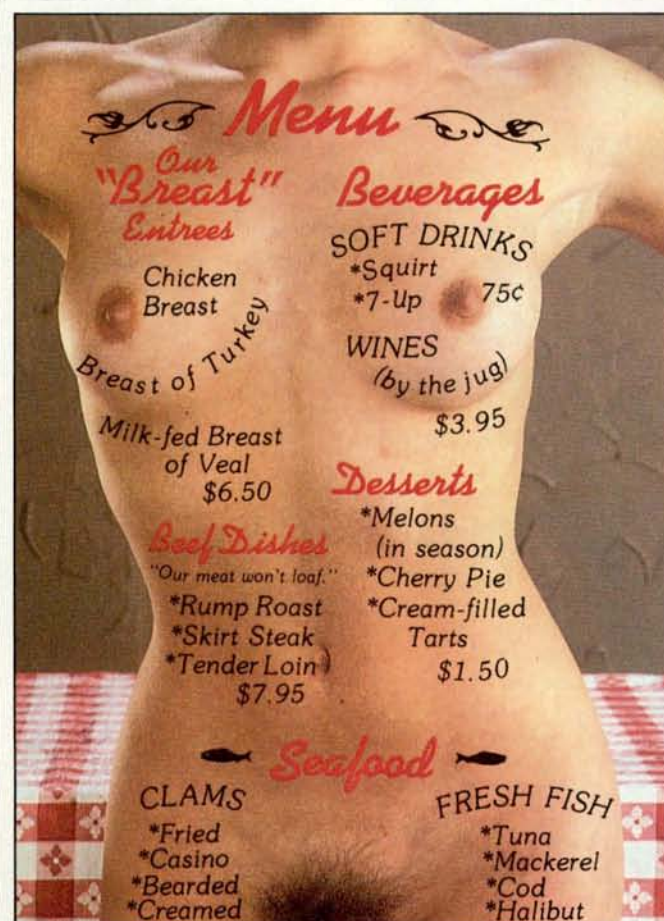 Menu
Our
"Breast"
Entrees
Chicken
Breast
Breast of Turkey
Milk-fed Breast
of Veal
$6.50
Beef Dishes
"Our meat won't loaf."
*Rump Roast
*Skirt Steak
*Tender Loin
$7.95
Beverages
SOFT DRINKS
*Squirt
*7-Up
75¢
WINES
(by the jug)
$3.95
Desserts
*Melons
(in season)
*Cherry Pie
*Cream-filled
Tarts
$1.50
Seafood
CLAMS
*Fried
*Casino
*Bearded
*Creamed
FRESH FISH
*Tuna
*Mackerel
*Cod
*Halibut